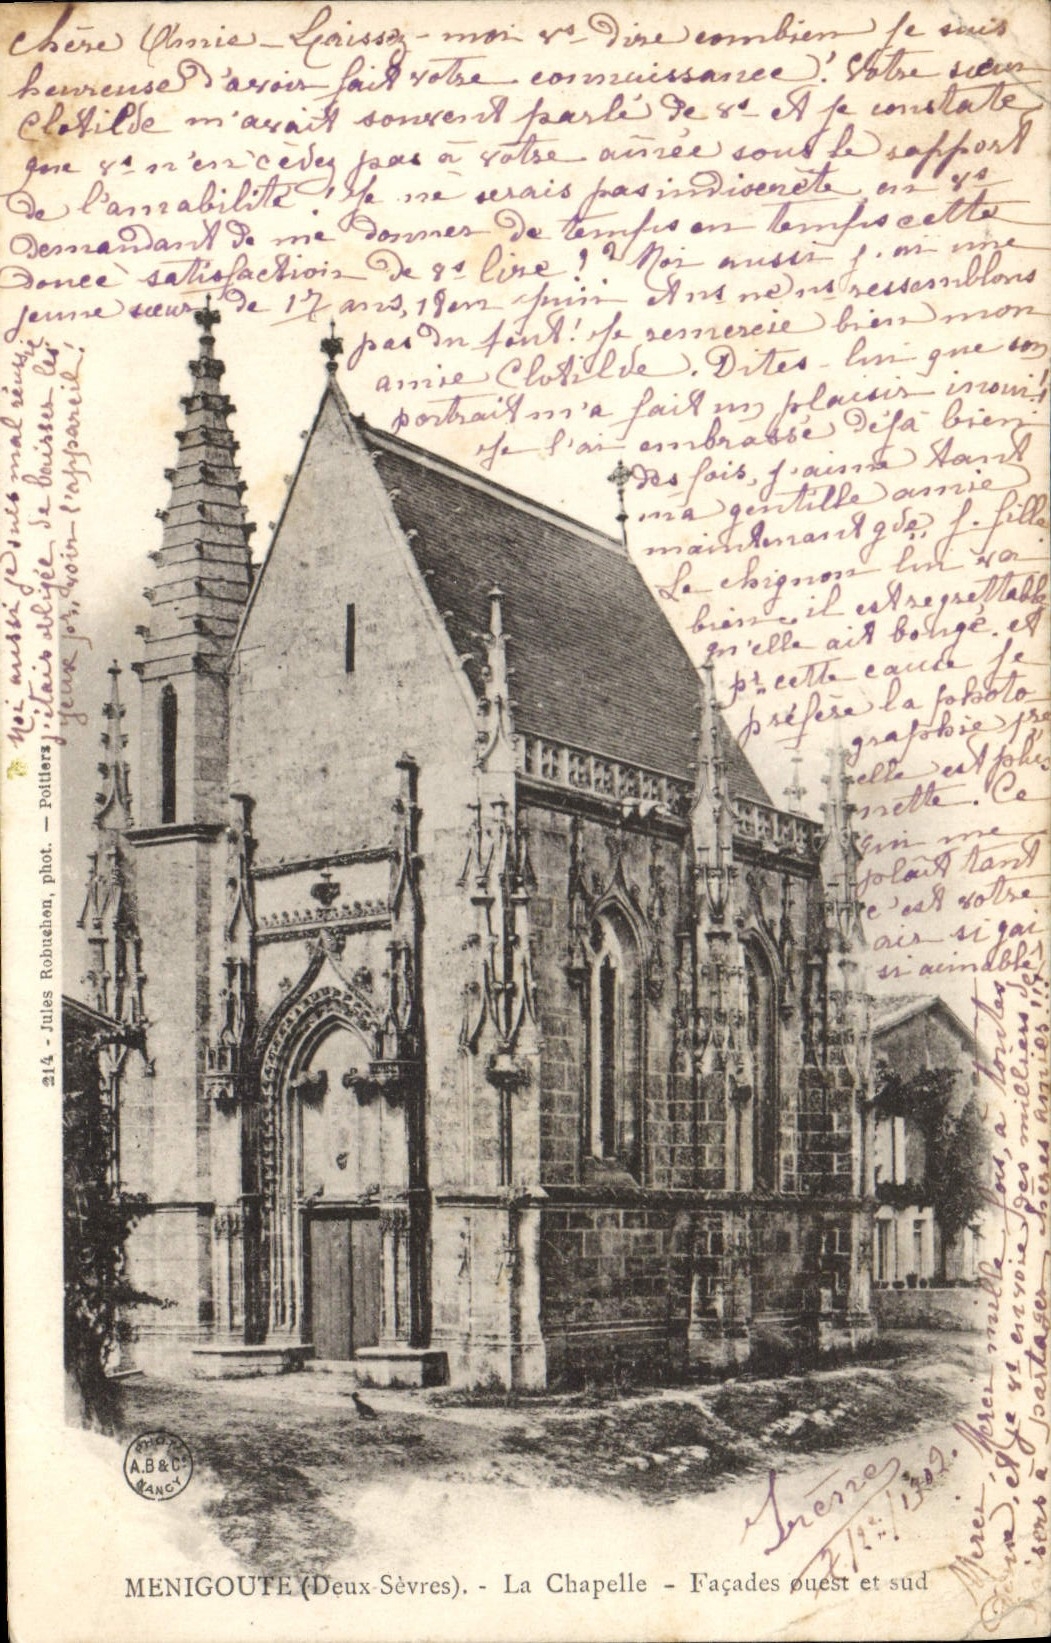 Chère Amie - Laissez-moi vs dire combien je suis
heureuse d'avoir fait votre connaissance! Votre sœur
Clotilde m'avait souvent parlé de vs et je constate
que vs n'en cédez pas à votre aînée sous le rapport
de l'amabilité! Je ne serais pas indiscrète en vs
demandant de me donner de temps en temps cette
douce satisfaction de vs lire!? Moi aussi j'ai une
jeune sœur de 17 ans, 18 en juin et ns ne ns ressemblons
pas du tout! Je remercie bien mon
amie Clotilde. Dites-lui que son
portrait m'a fait un plaisir inouï!
Je l'ai embrassé déjà bien
des fois, j'aime tant
ma gentille amie
maintenant gde j. fille
Le chignon lui va
bien, il est regrettable
qu'elle ait bougé. et
pr cette cause je
préfère la photo-
graphie
elle est plus
nette. Ce
qui me
plaît tant
c'est votre
air si gai
si aimable!
Merci, Merci mille fois, à toutes
et je vs envoie des milliers de
à partager chères amies!!!
Moi aussi je suis mal réussie
j'étais obligée de baisser les
yeux pr voir l'appareil!
Irène
1902.
214 - Jules Robuchon, phot. — Poitiers
PHOT.
A.B & Cie
NANCY
MENIGOUTE (Deux-Sèvres). - La Chapelle - Façades ouest et sud